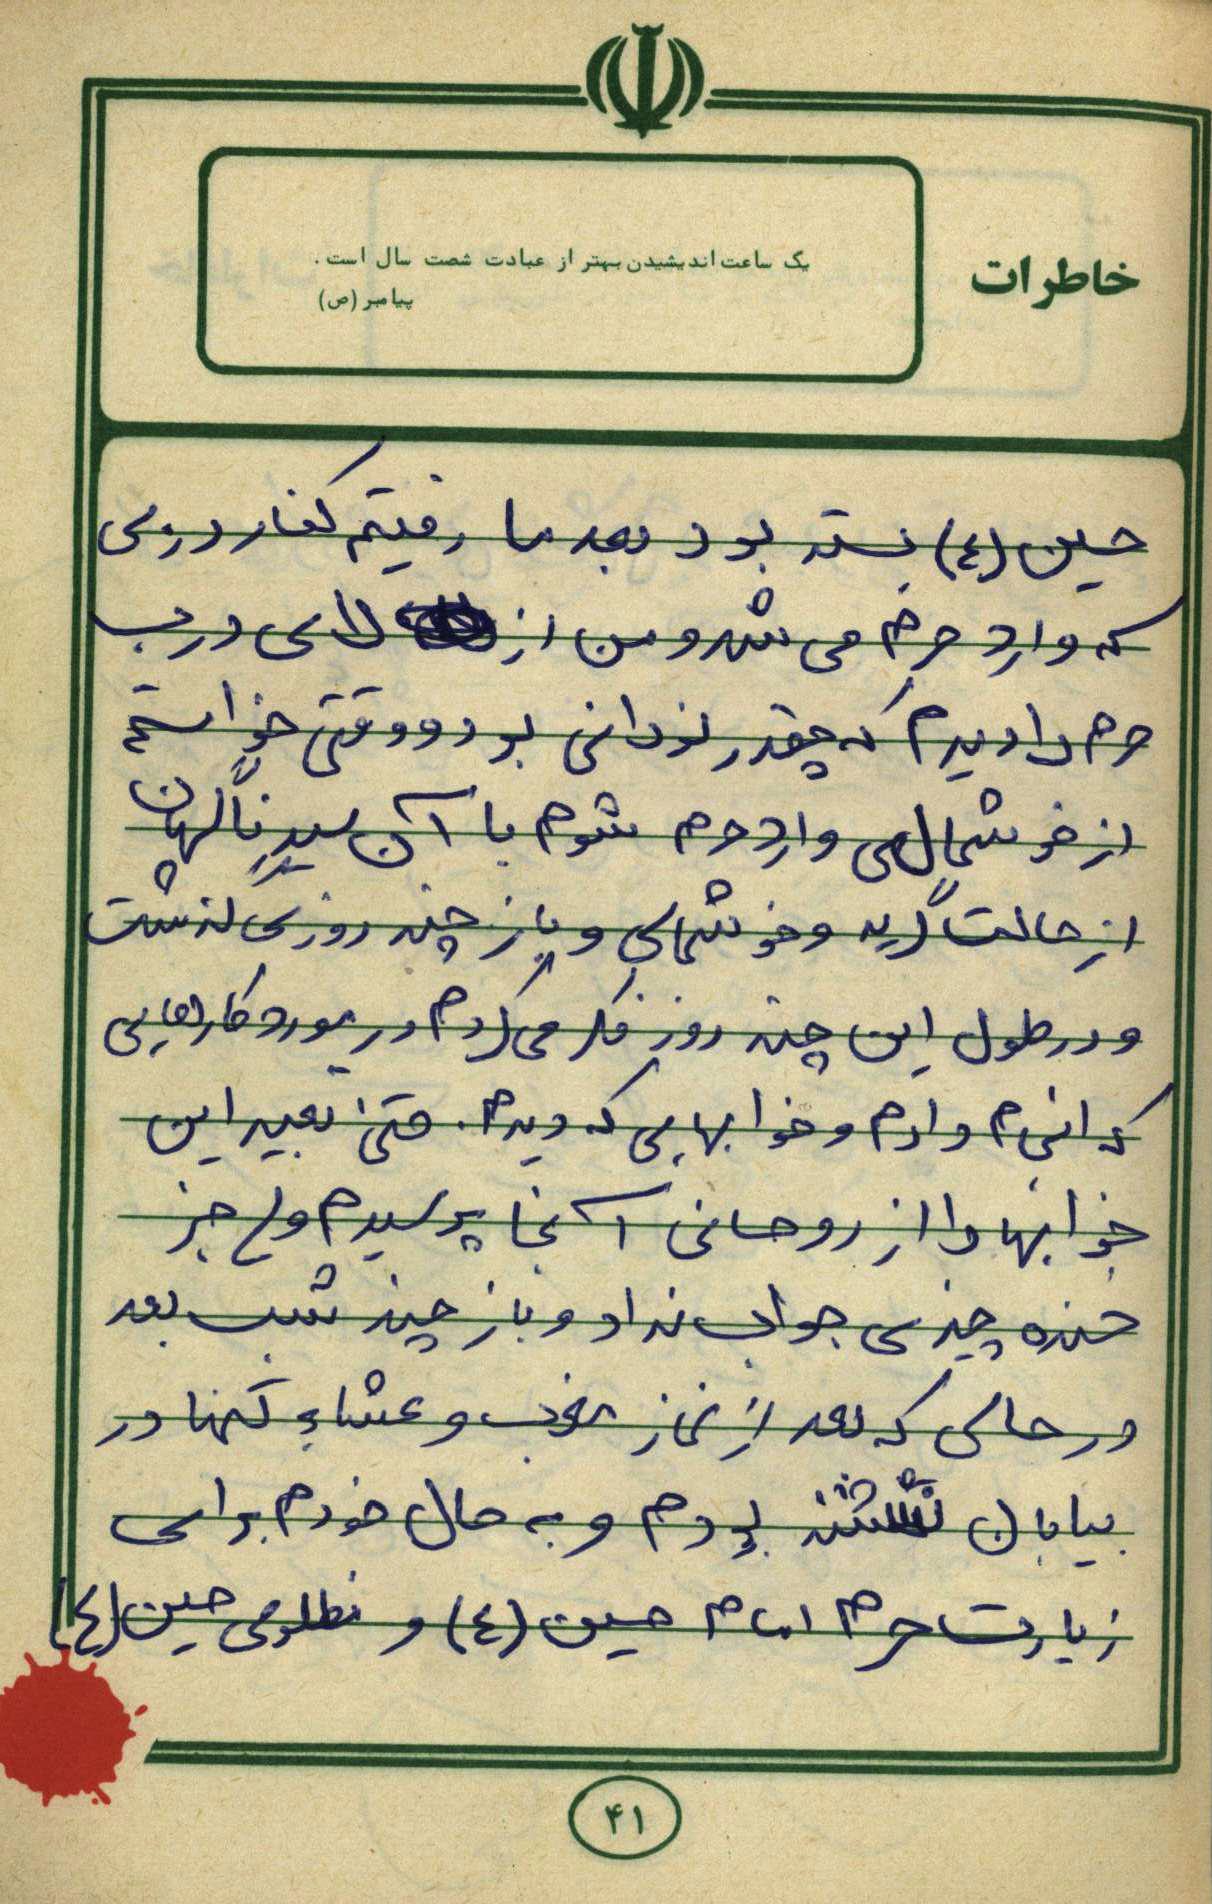 خاطرات
یک ساعت اندیشیدن بهتر از عبادت شصت سال است.
پیامبر (ص)
حسین (ع) بسته بود بعد ما رفتیم کنار دربی
که وارد حرم می شد و من از لای درب
حرم را دیدم که چقدر نورانی بود و وقتی خواستم
از خوشحالی وارد حرم شوم با آن سید ناگهان
از حالت گریه و خوشحالی و باز چند روزی گذشت
و در طول این چند روز فکر می کردم در مورد کارهایی
که انجام دادم و خوابهایی که دیدم. حتی تعبیر این
خوابها را از روحانی آنجا پرسیدم ولی جز
خنده چیزی جواب نداد و باز چند شب بعد
در حالی که بعد از نماز مغرب و عشاء تنها در
بیابان نشسته بودم و به حال خودم برای
زیارت حرم امام حسین (ع) و مظلومی حسین (ع)
۴۱